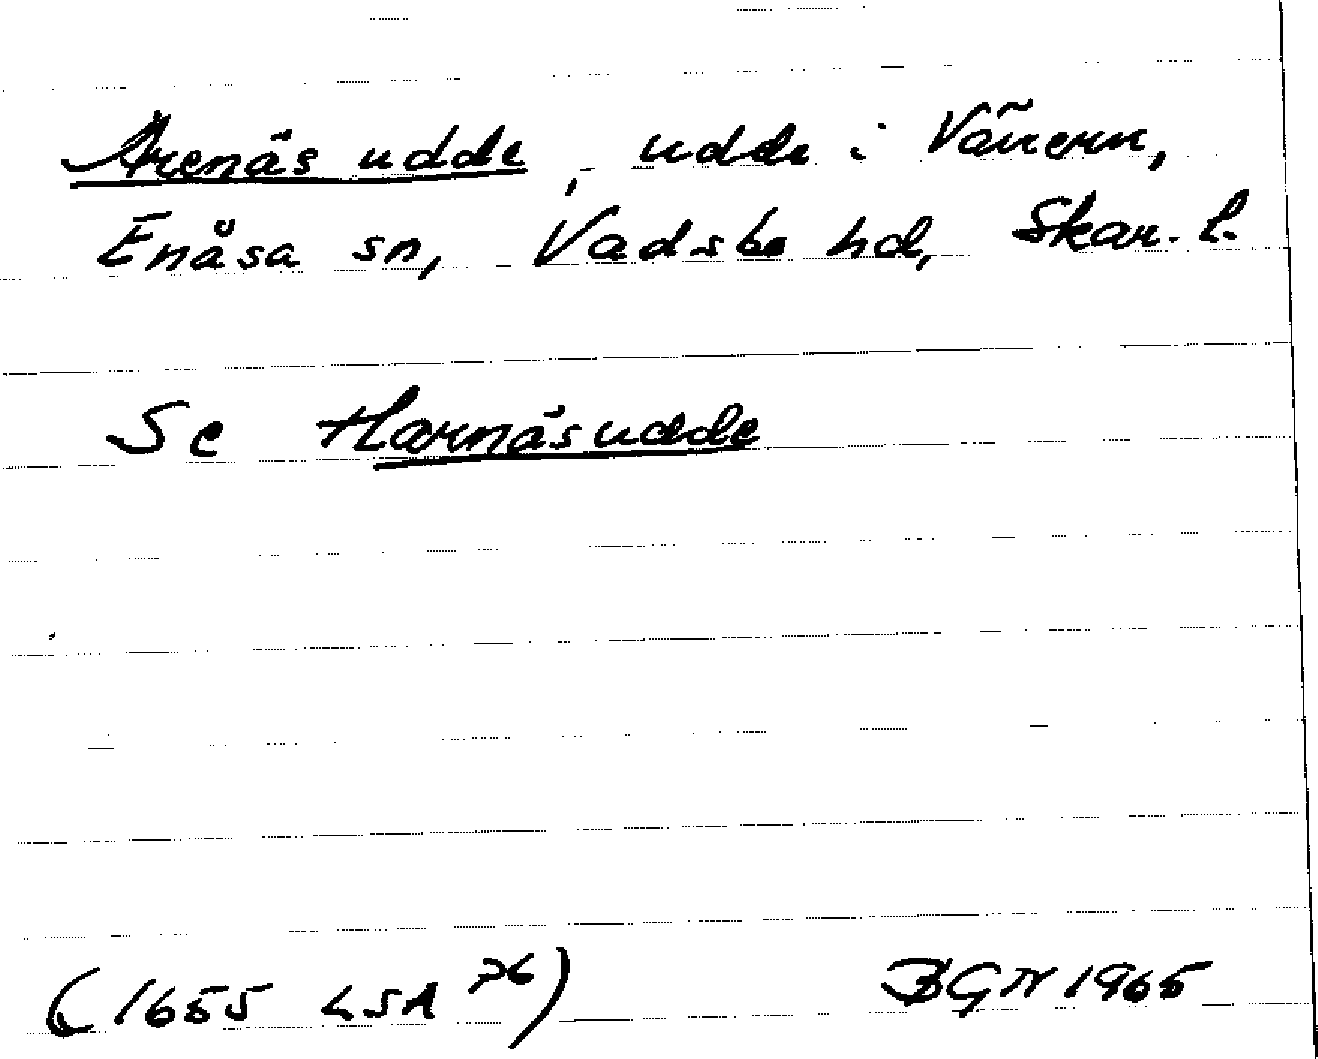 Arenäs udde, udde i Vänern,
Enåsa sn, Vadsbo hd, Skar. l.
Se Harnäsudde
(1655 LSA 76) BGN 1965